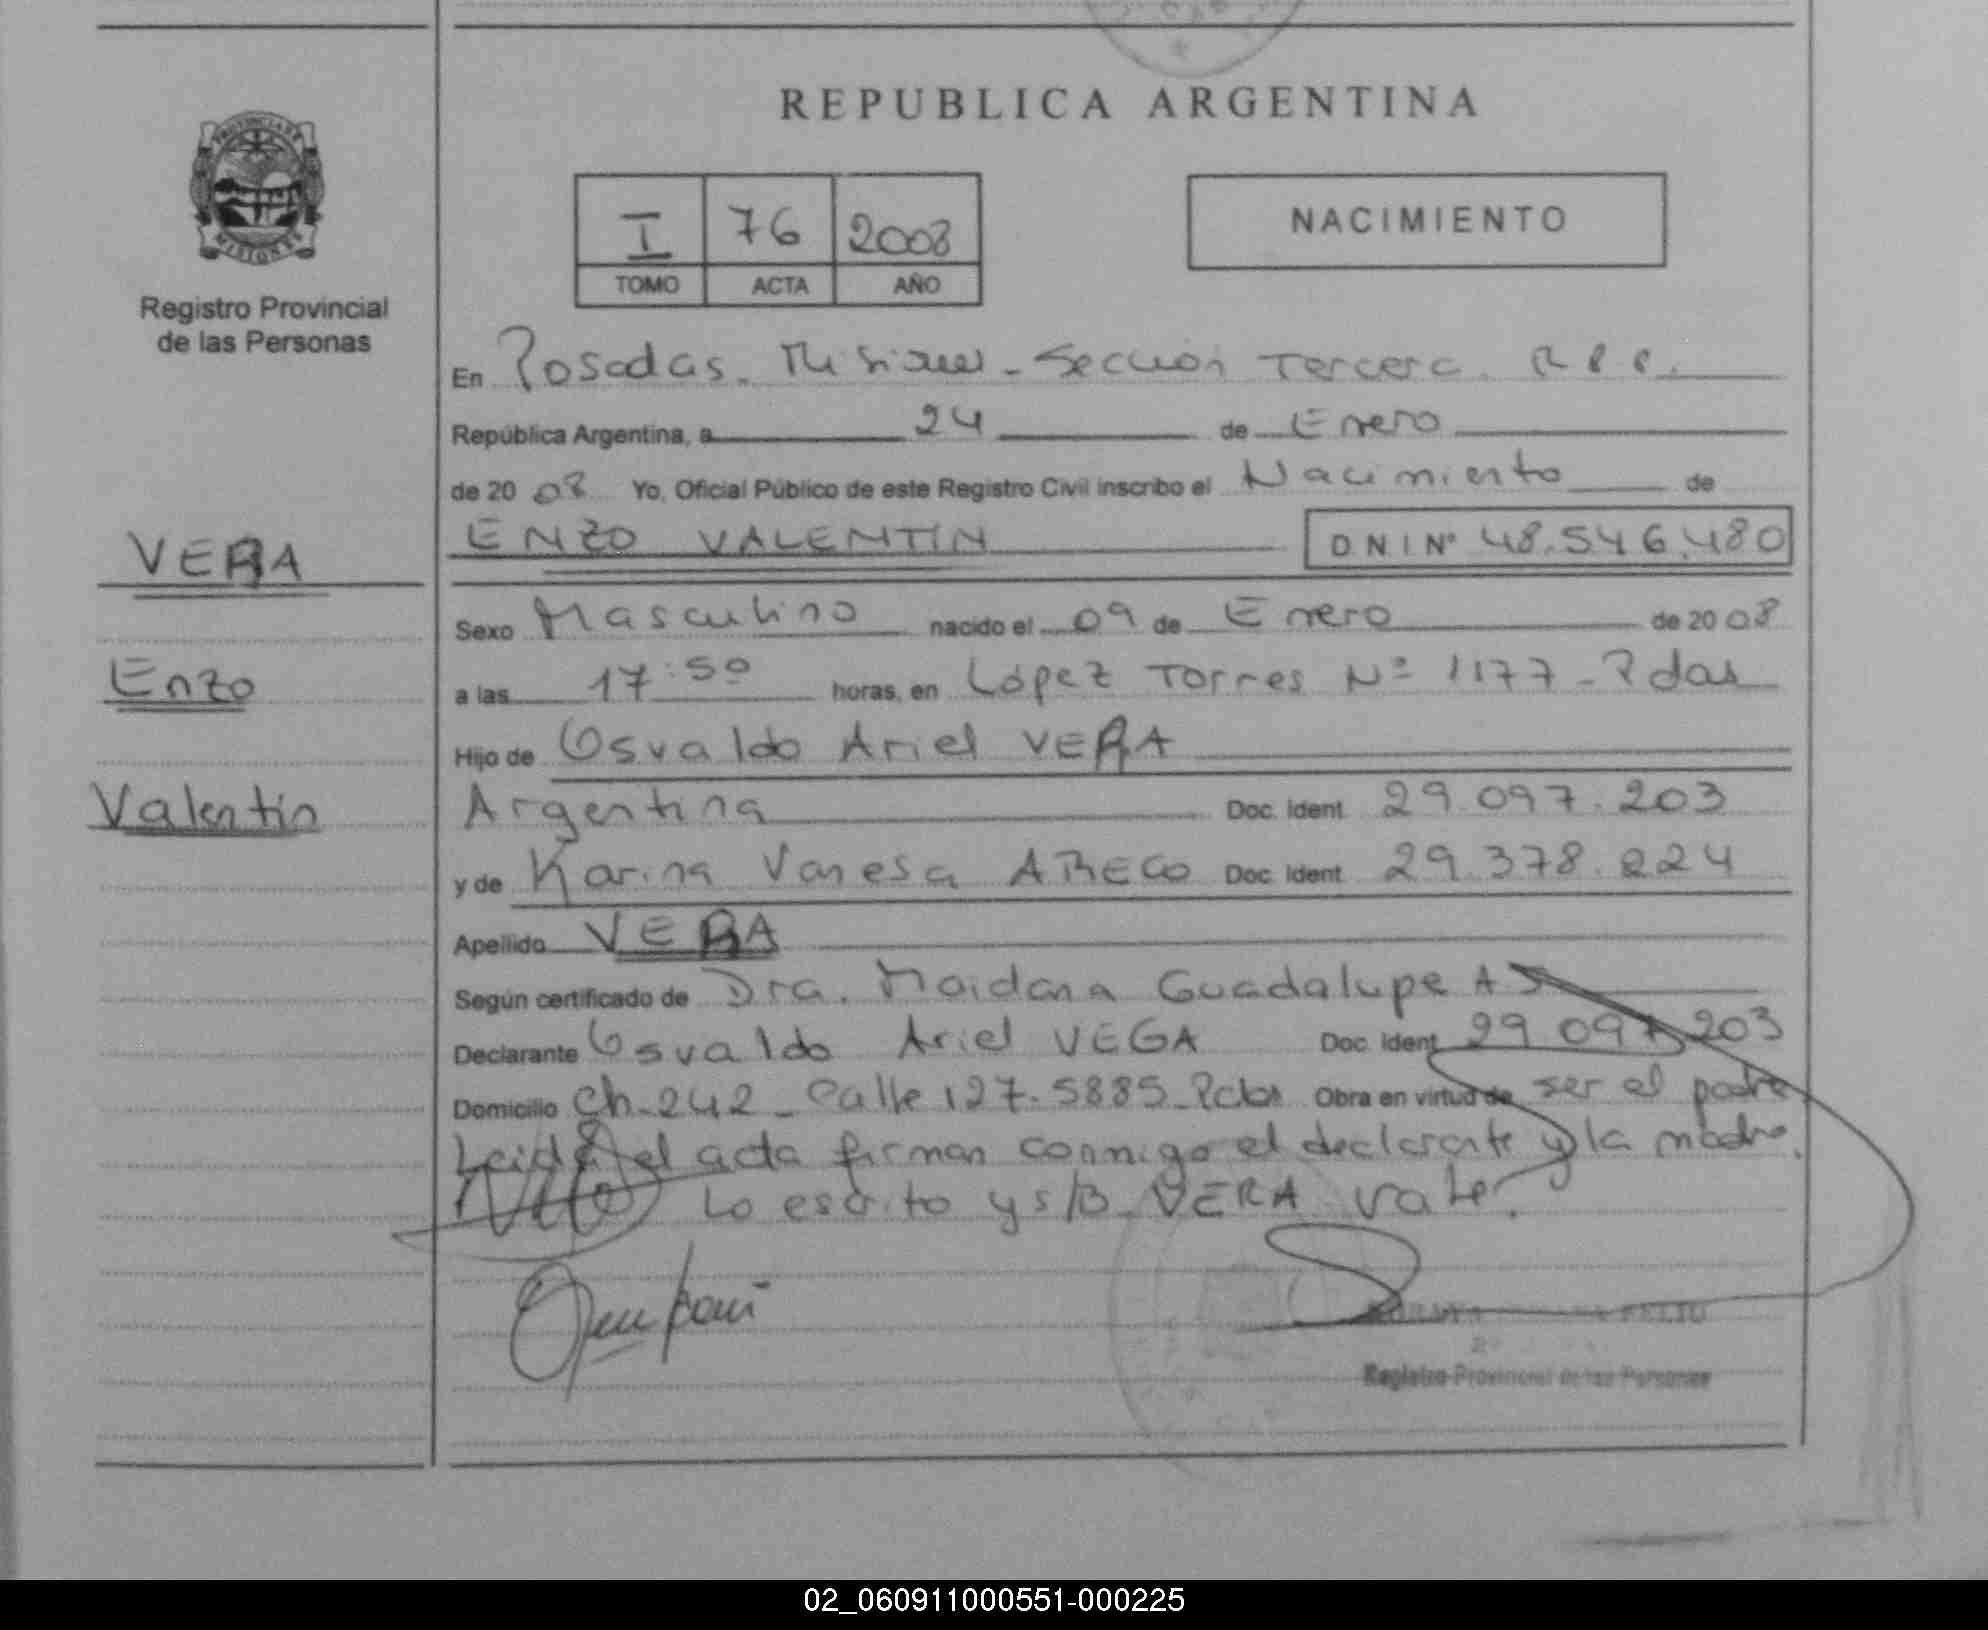 REPUBLICA ARGENTINA
PROVINCIA DE
MISIONES
Registro Provincial
de las Personas
I 76 2008
TOMO ACTA AÑO
NACIMIENTO
En Posadas. Misiones - Sección Tercera. R.P.P.
República Argentina, a 24 de Enero
de 20 08 Yo, Oficial Público de este Registro Civil inscribo el Nacimiento de
VERA
ENZO VALENTIN D N I Nº 48.546.480
Sexo Masculino nacido el 09 de Enero de 20 08
Enzo
a las 17:50 horas, en López Torres Nº 1177 - Pdas
Hijo de Osvaldo Ariel VERA
Valentín
Argentina Doc. Ident. 29.097.203
y de Karina Vanesa ARECO Doc. Ident. 29.378.224
Apellido VERA
Según certificado de Dra. Maidana Guadalupe A
Declarante Osvaldo Ariel VEGA Doc. Ident. 29.097.203
Domicilio Ch. 242 - Calle 127. 5885 - Pdas Obra en virtud de ser el padre
Leida el acta firman conmigo el declarante y la madre.
Lo escrito y s/B VERA vale.
Registro Provincial de las Personas
02_060911000551-000225